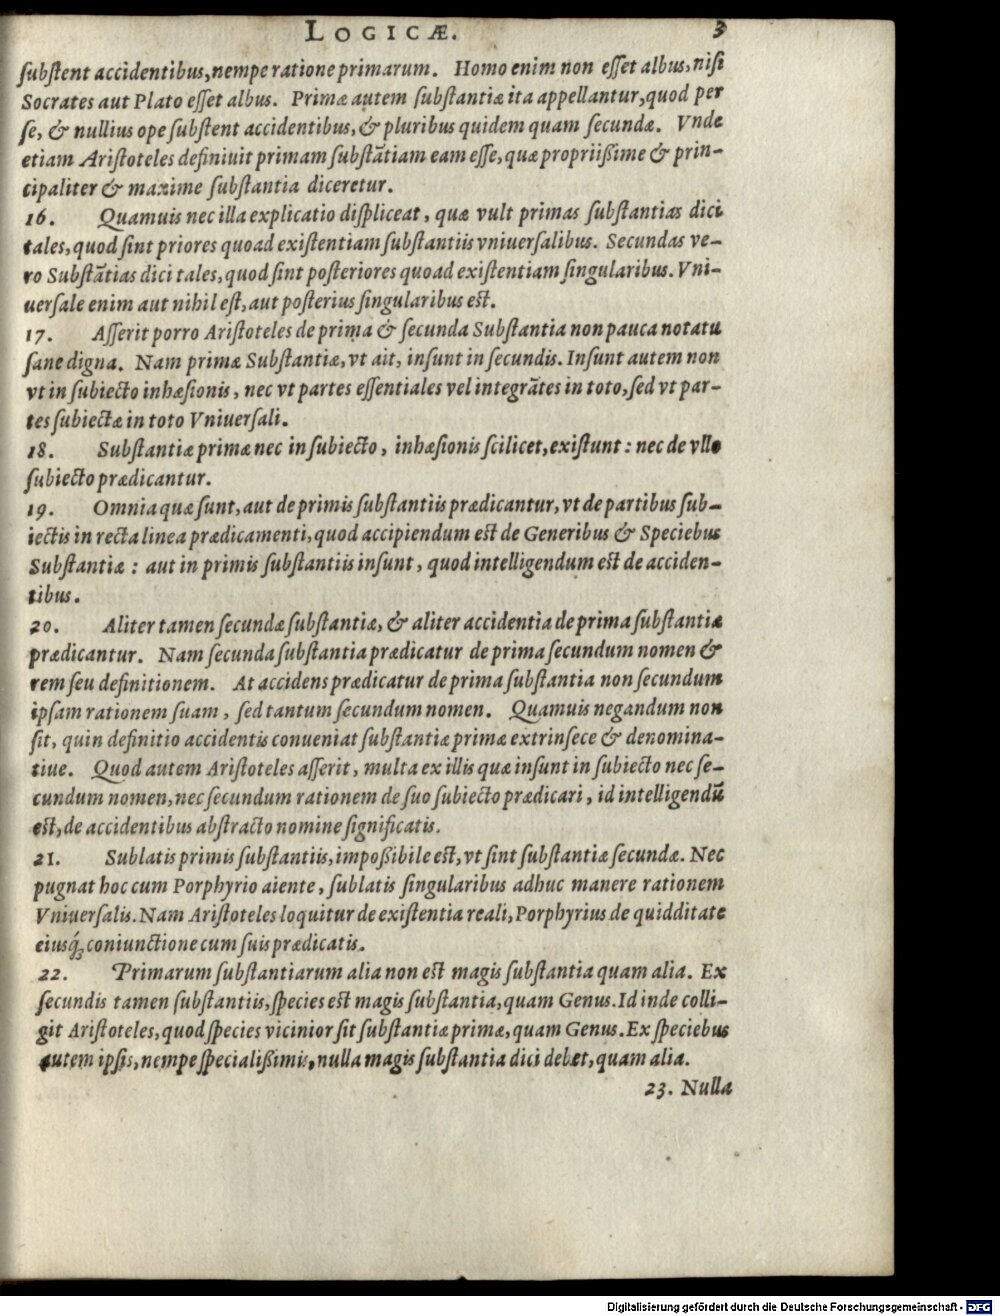 LOGICÆ. 3
ſubſtent accidentibus, nempe ratione primarum. Homo enim non eſſet albus, niſi
Socrates aut Plato eſſet albus. Primæ autem ſubſtantiæ ita appellantur, quod per
ſe, & nullius ope ſubſtent accidentibus, & pluribus quidem quam ſecundæ. Vnde
etiam Ariſtoteles definiuit primam ſubſtãtiam eam eſſe, quæ propriißime & prin-
cipaliter & maxime ſubſtantia diceretur.
16. Quamuis nec illa explicatio diſpliceat, quæ vult primas ſubſtantias dici
tales, quod ſint priores quoad exiſtentiam ſubſtantiis vniuerſalibus. Secundas ve-
ro Subſtãtias dici tales, quod ſint poſteriores quoad exiſtentiam ſingularibus. Vni-
uerſale enim aut nihil eſt, aut poſterius ſingularibus est.
17. Aſſerit porro Ariſtoteles de prima & ſecunda Subſtantia non pauca notatu
ſane digna. Nam primæ Subſtantiæ, vt ait, inſunt in ſecundis. Inſunt autem non
vt in ſubiecto inhæſionis, nec vt partes eſſentiales vel integrãtes in toto, ſed vt par-
tes ſubiectæ in toto Vniuerſali.
18. Subſtantiæ primæ nec in ſubiecto, inhæſionis ſcilicet, exiſtunt: nec de vllo
ſubiecto prædicantur.
19. Omnia quæ ſunt, aut de primis ſubſtantiis prædicantur, vt de partibus ſub-
iectis in recta linea prædicamenti, quod accipiendum est de Generibus & Speciebus
Subſtantiæ: aut in primis ſubſtantiis inſunt, quod intelligendum est de acciden-
tibus.
20. Aliter tamen ſecundæ ſubſtantiæ, & aliter accidentia de prima ſubſtantia
prædicantur. Nam ſecunda ſubſtantia prædicatur de prima ſecundum nomen &
rem ſeu definitionem. At accidens prædicatur de prima ſubſtantia non ſecundum
ipſam rationem ſuam, ſed tantum ſecundum nomen. Quamuis negandum non
ſit, quin definitio accidentis conueniat ſubſtantiæ primæ extrinſece & denomina-
tiue. Quod autem Ariſtoteles aſſerit, multa ex illis quæ inſunt in ſubiecto nec ſe-
cundum nomen, nec ſecundum rationem de ſuo ſubiecto prædicari, id intelligendũ
est, de accidentibus abſtracto nomine ſignificatis.
21. Sublatis primis ſubſtantiis, impoßibile est, vt ſint ſubſtantiæ ſecundæ. Nec
pugnat hoc cum Porphyrio aiente, ſublatis ſingularibus adhuc manere rationem
Vniuerſalis. Nam Ariſtoteles loquitur de exiſtentia reali, Porphyrius de quidditate
eiusq́; coniunctione cum ſuis prædicatis.
22. Primarum ſubſtantiarum alia non est magis ſubſtantia quam alia. Ex
ſecundis tamen ſubſtantiis, ſpecies est magis ſubſtantia, quam Genus. Id inde colli-
git Ariſtoteles, quod ſpecies vicinior ſit ſubſtantiæ primæ, quam Genus. Ex ſpeciebus
autem ipſis, nempe ſpecialißimis, nulla magis ſubſtantia dici debet, quam alia.
23. Nulla
Digitalisierung gefördert durch die Deutsche Forschungsgemeinschaft - DFG